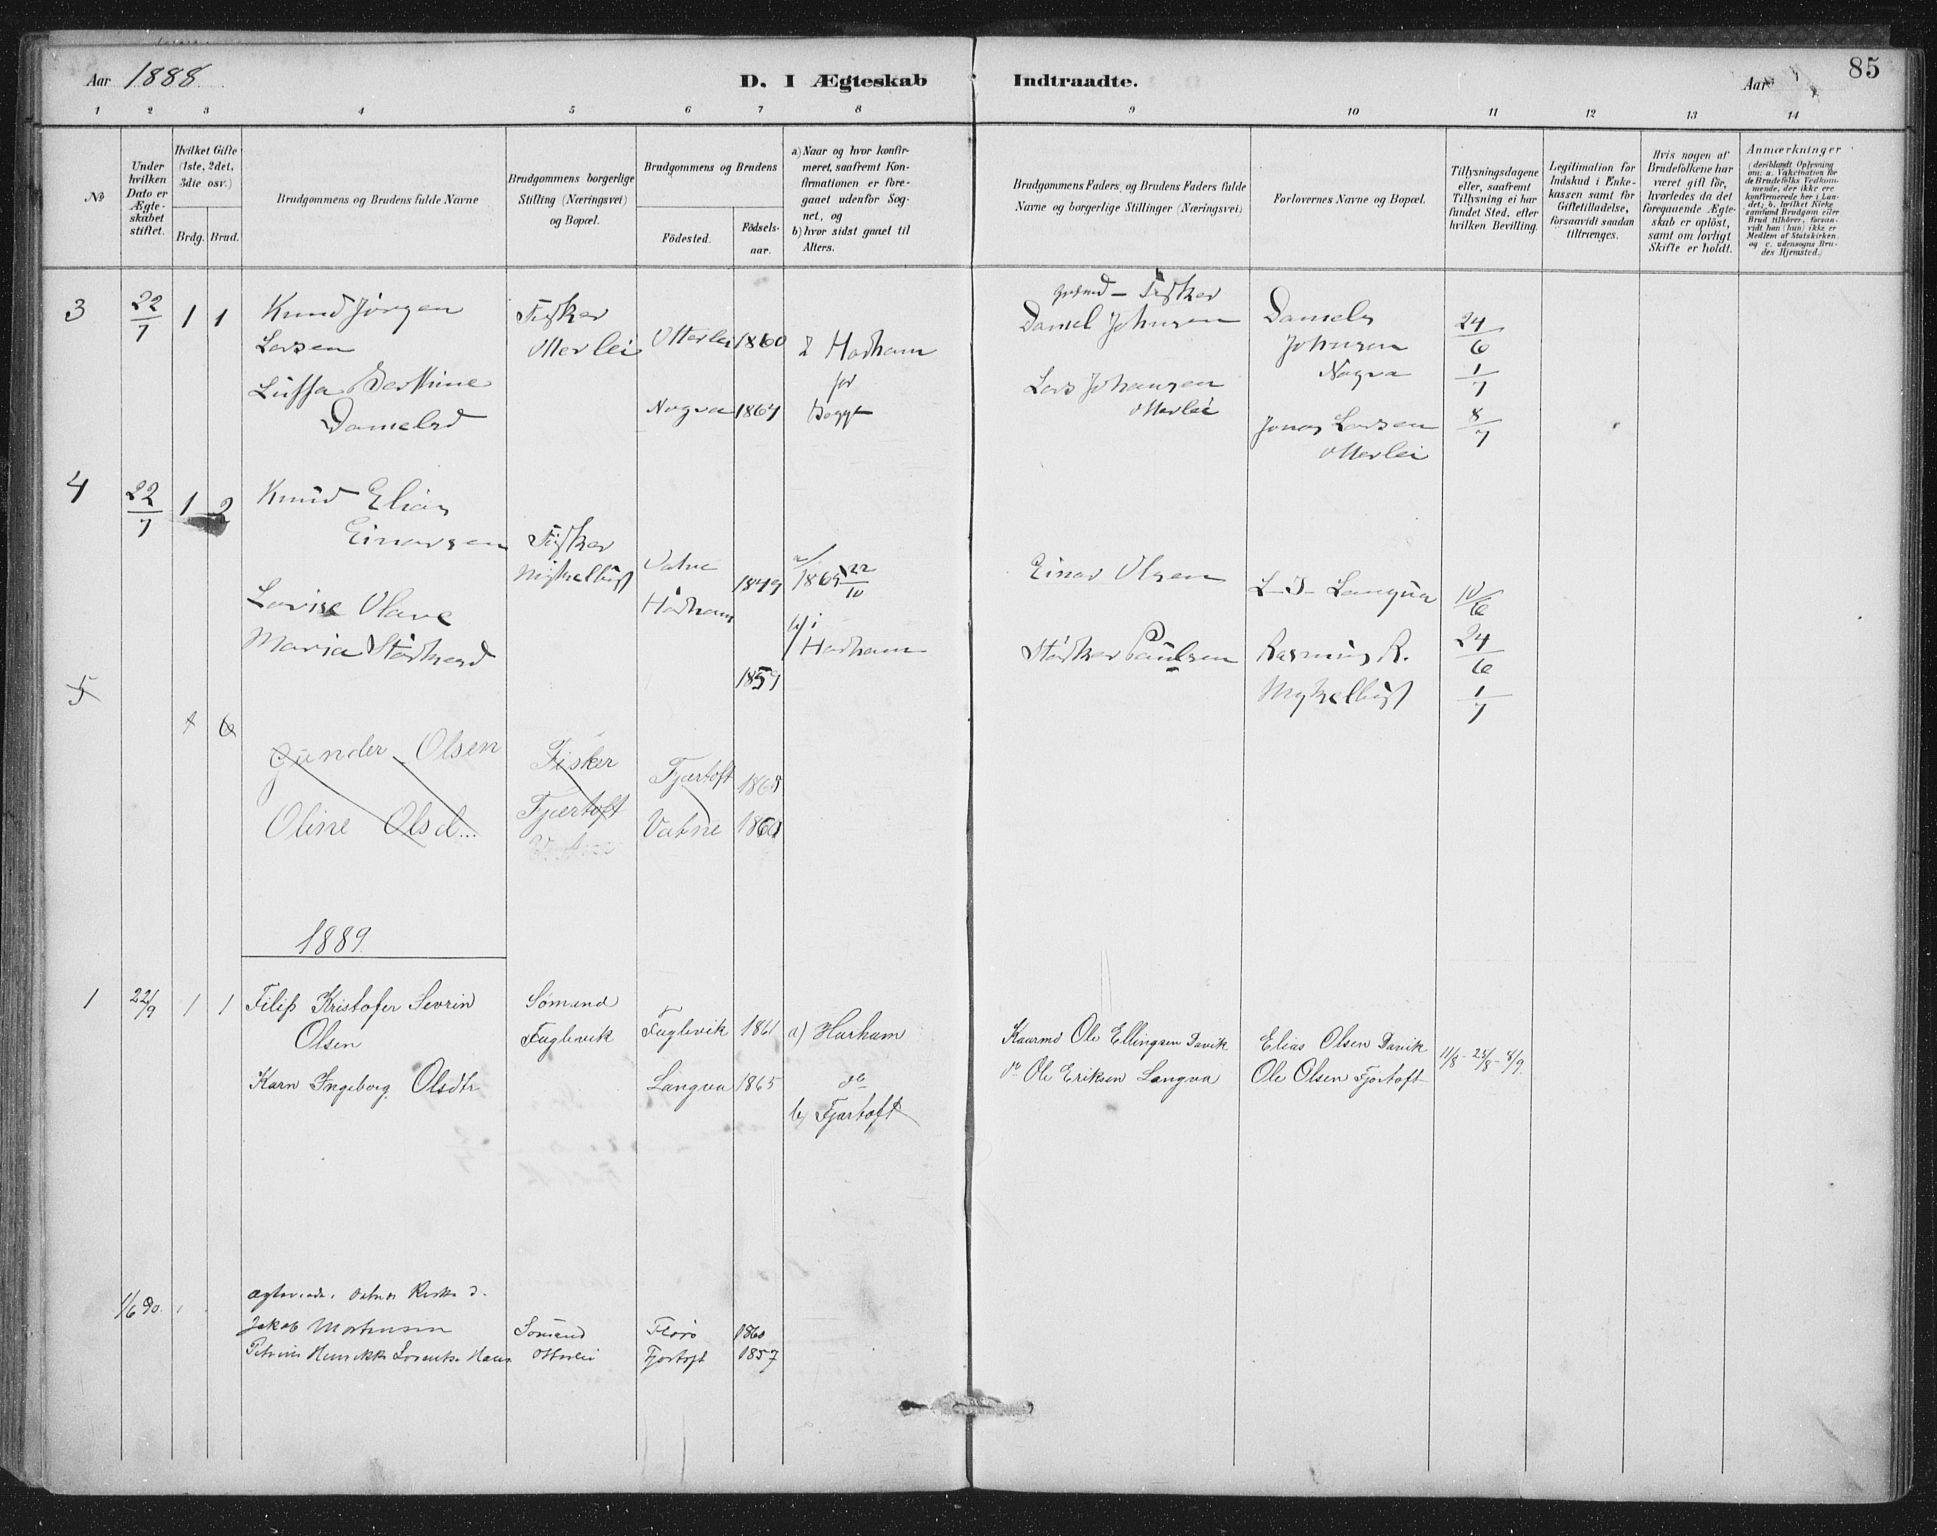 85
Aar 1888.
D. I Ægteskab Indtraadte.
Aar
1 2 3 4 5 6 7 8 9 10 11 12 13 14
No
Under hvilken Dato er Ægteskabet stiftet.
Hvilket Gifte (1ste, 2det, 3die osv.)
Brdg. Brud.
Brudgommens og Brudens fulde Navne
Brudgommens borgerlige Stilling (Næringsvei) og Bopæl.
Brudgommens og Brudens
Födested.
Födselsaar.
a) Naar og hvor konfirmeret, saafremt Konfirmationen er foregaaet udenfor Sognet, og
b) hvor sidst gaaet til Alters.
Brudgommens Faders, og Brudens Faders fulde Navne og borgerlige Stillinger (Næringsvei)
Forlovernes Navne og Bopæl.
Tillysningsdagene eller, saafremt Tillysning ei har fundet Sted, efter hvilken Bevilling.
Legitimation for Indskud i Enkekassen samt for Giftetilladelse, forsaavidt saadan tiltrænges.
Hvis nogen af Brudefolkene har været gift før, hvorledes da det foregaaende Ægteskab er opløst, samt om lovligt Skifte er holdt.
Anmærkninger
(deriblandt Oplysning om: a. Vakcination for de Brudefolks Vedkommende, der ikke ere konfirmerede her i Landet; b. hvilket Kirkesamfund Brudgom eller Brud tilhører, forsaavidt han (hun) ikke er Medlem af Statskirken, og c. udensogns Brudes Hjemsted.)
3 22/7 1 1 Knud Jörgen
Larsen
Fisker
Otterlei
Otterlei 1860
Harham
for
Begge
Fisker
Daniel Johnsen
Daniel
Johnsen
Nogva
24/6
1/7
8/7
Danielsd
Nogva 1864
Lars Johansen
Otterlei
Jonas Larsen
Otterlei
4 22/7 1 2 Knud Elias
Einarsen
Fisker
Myklebust
Vatne 1849
a/ 1865 22/10
Einar Olsen
Langva
10/6
Lovise Olave
Maria Størkersd
Harham
1859
b/ i
Harham
Størker Paulsen
Rasmus R.
Myklebust
24/6
1/7
5
Gunder Olsen Fisker Fjærtoft 1865
Fjærtoft
Oline Olsd... Vatne 1860
1889.
1 22/9 1 1 Filip Kristofer Sevrin
Olsen
Sømand
Fuglevik
Fuglevik 1861 a) Harham
Kaarmd Ole Ellingsen Davik
Elias Olsen Davik
11/8 - 25/8 - 8/9.
Karn Ingeborg Olsdtr
Langva 1865 do
Do Ole Eriksen Langva
Ole Olsen Fjørtoft
b) Fjærtoft
1/6 90.
Jakob Mortensen Sømand Florø 1860
Otterlei Fjortoft 1857